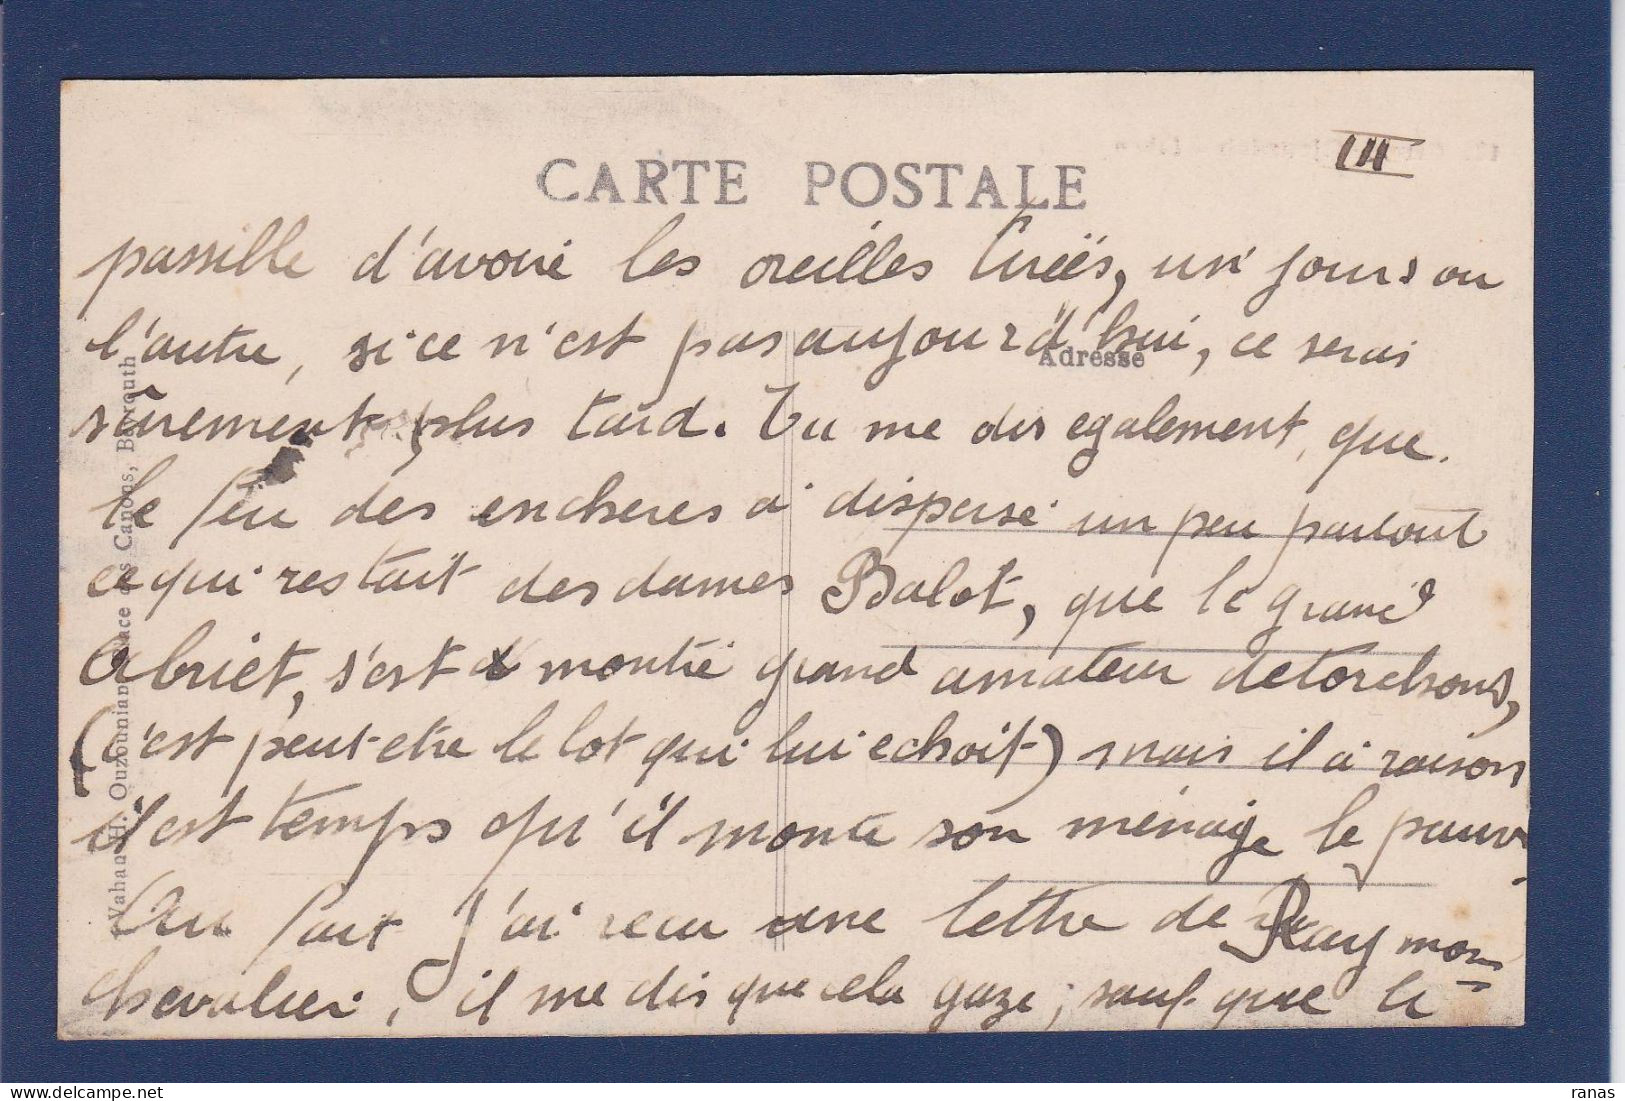 III
CARTE POSTALE
passille d'avoire les oreilles tireës, un jours ou
l'autre, si ce n'est pas aujourd'hui, ce serai
Adresse
sûrement plus tard. Tu me dis egalement, que.
le feu des encheres a dispersé un peu partout
ce qui restait des dames Balot, que le grand
Abriet, s'est montré grand amateur de torchons,
(c'est peut-etre le lot qui lui echoit) mais il a raison
il est temps qu'il monte son ménage le pauv
Au fait j'ai recu une lettre de Raymon
chevalier, il me dis que cela gaze; sauf que le
Vahan H. Ouzounian, Place des Canons, Beyrouth
ranas